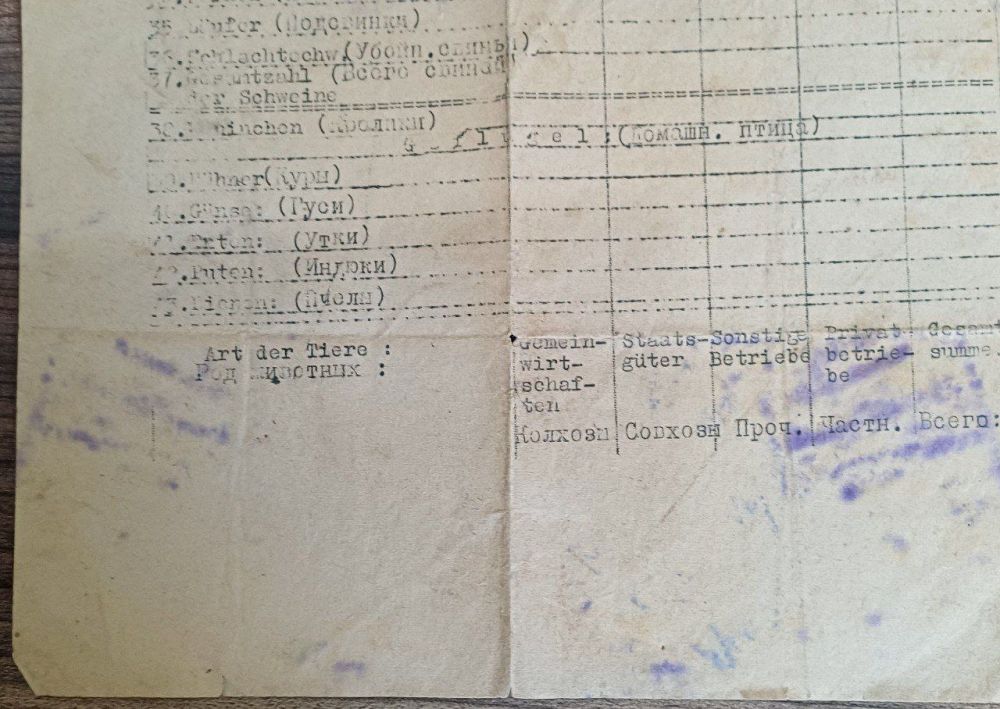 35. Läufer (Подсвинки)
36. Schlachtschw. (Убойн.свиньи)
37. Gesamtzahl (Всего свиней)
der Schweine
38. Kaninchen (Кролики)
G e f l ü g e l : (Домашн. птица)
39. Hühner (Куры)
40. Gänse: (Гуси)
41. Enten: (Утки)
42. Puten: (Индюки)
43. Bienen: (Пчелы)
Art der Tiere :
Род животных :
Gemein-
wirt-
schaf-
ten
Колхозы
Staats-
güter
Совхозы
Sonstige
Betriebe
Проч.
Privat
betrie-
be
Частн.
Gesamt
summe.
Всего: